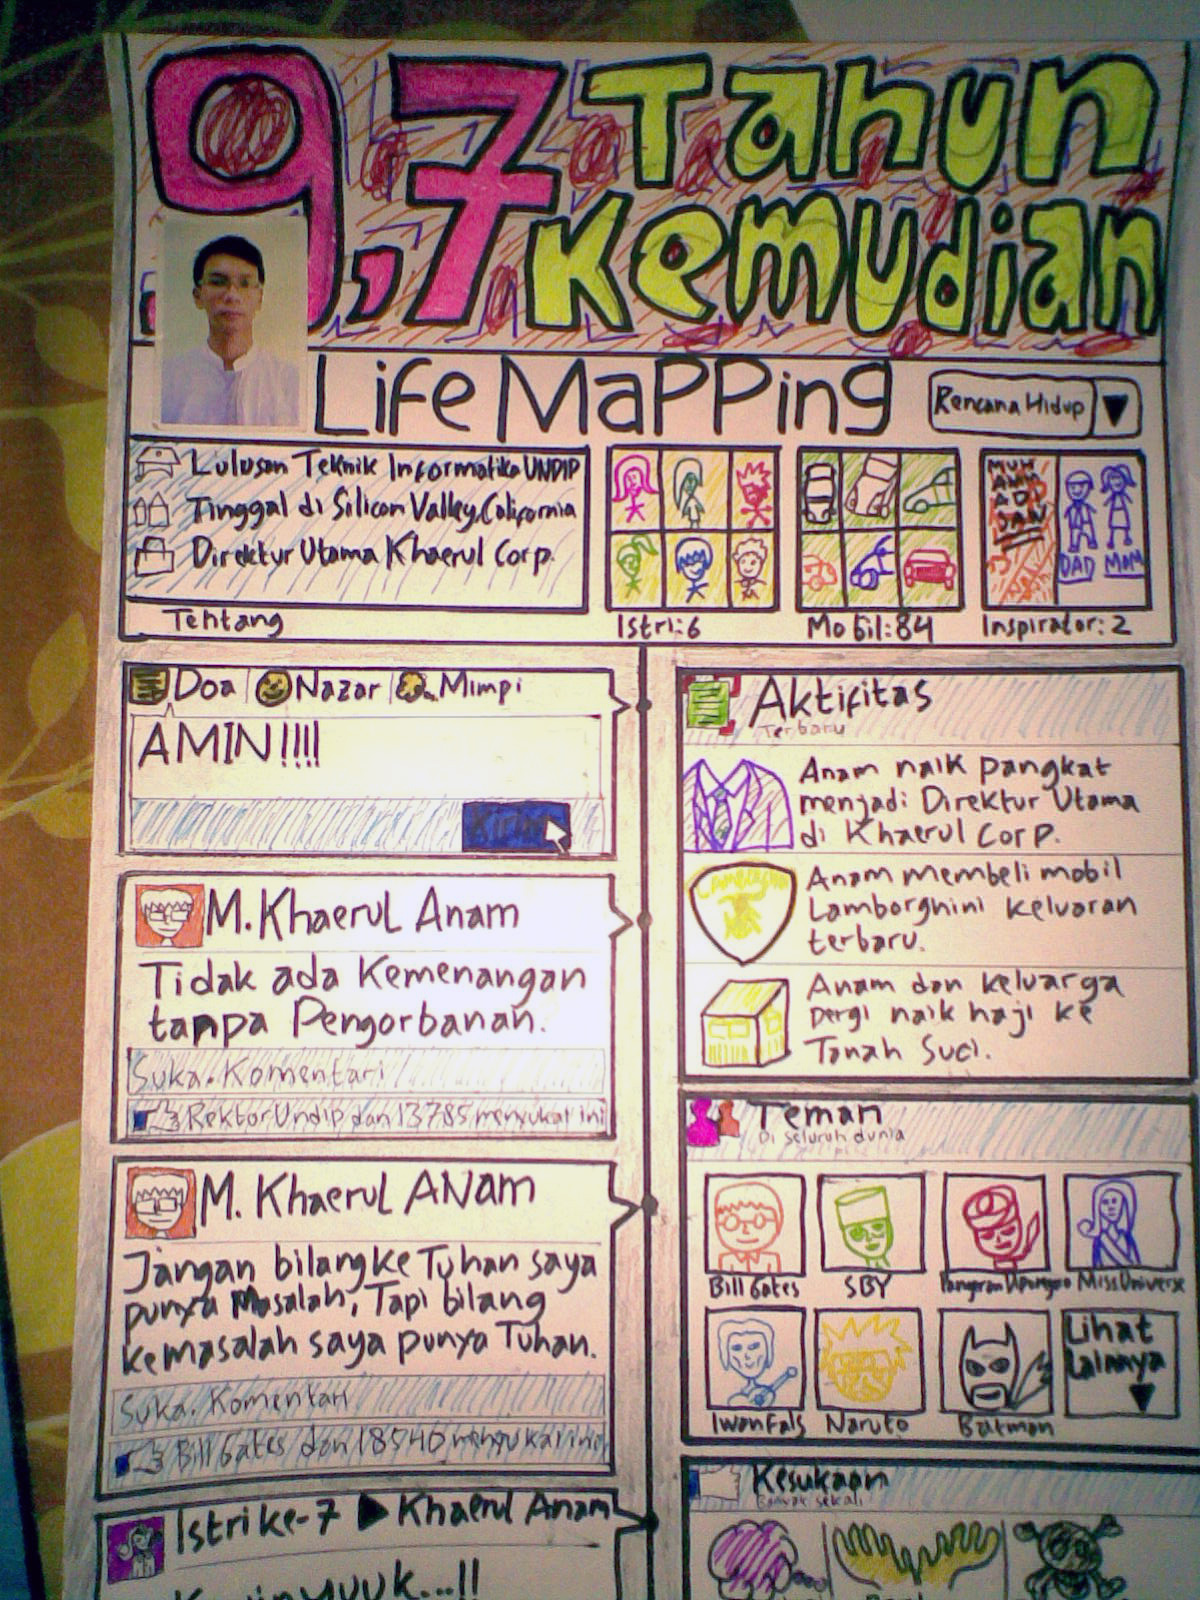 9,7 Tahun
Kemudian
Life Mapping
Rencana Hidup
Lulusan Teknik Informatika UNDIP
Tinggal di Silicon Valley, California
Direktur Utama Khaerul Corp.
Tentang
Istri: 6
Mobil: 84
DAD MOM
Inspirator: 2
Doa
Nazar
Mimpi
AMIN!!!!
Kirim
M. Khaerul Anam
Tidak ada Kemenangan
tanpa Pengorbanan.
Suka. Komentari
Rektor Undip dan 13785 menyukai ini
M. Khaerul ANam
Jangan bilang ke Tuhan saya
punya Masalah, Tapi bilang
ke masalah saya punya Tuhan.
Suka. Komentari
Bill Gates dan 18540 menyukai ini
Istri ke-7 ▶ Khaerul Anam
Aktifitas
Terbaru
Anam naik pangkat
menjadi Direktur Utama
di Khaerul Corp.
Anam membeli mobil
Lamborghini keluaran
terbaru.
Anam dan keluarga
pergi naik haji ke
Tanah Suci.
Teman
Di seluruh dunia
Bill Gates
SBY
Miss Universe
Iwan Fals
Naruto
Batman
Lihat
Lainnya
Kesukaan
Banyak sekali